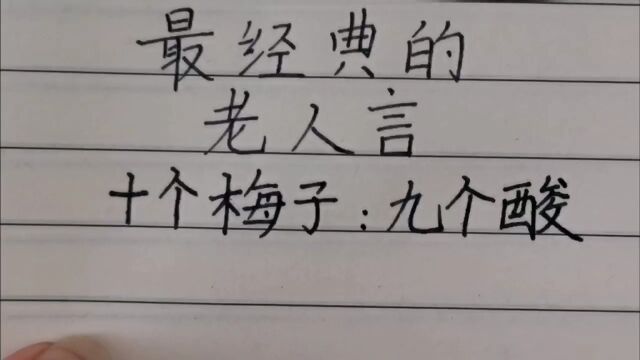 最经典的
老人言
十个梅子:九个酸